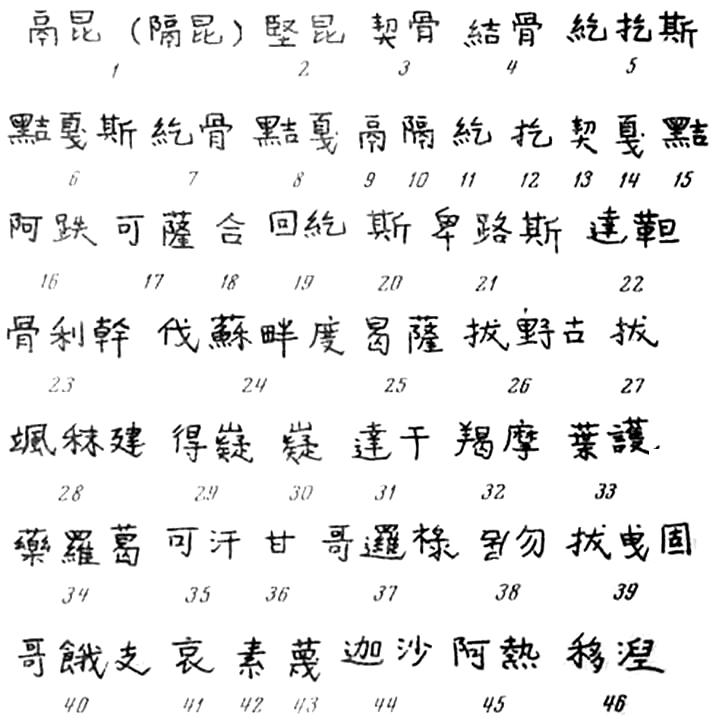 鬲昆 (隔昆) 堅昆 契骨 結骨 紇扢斯
1 2 3 4 5
黠戛斯 紇骨 黠戛 鬲 隔 紇 扢 契 戛 黠
6 7 8 9 10 11 12 13 14 15
阿跌 可薩 合 回紇 斯 卑路斯 達靼
16 17 18 19 20 21 22
骨利幹 伐蘇畔度 曷薩 拔野古 拔
23 24 25 26 27
颯秣建 得嶷 嶷 達干 羯摩 葉護
28 29 30 31 32 33
藥羅葛 可汗 甘 哥邏祿 勿 拔曳固
34 35 36 37 38 39
哥餓支 哀 素 蔑 迦沙 阿熱 移涅
40 41 42 43 44 45 46